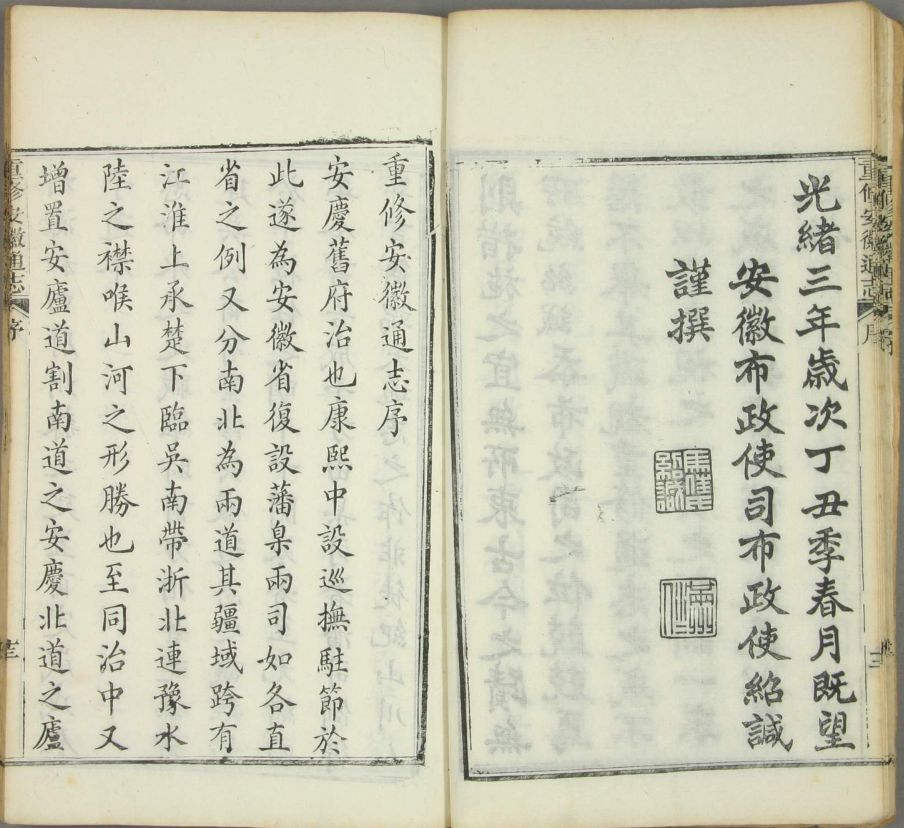 光緒三年歲次丁丑季春月既望
安徽布政使司布政使紹諴
謹撰
重修安徽通志
重修安徽通志序
安慶舊府治也康熙中設巡撫駐節於
此遂為安徽省復設藩臬兩司如各直
省之例又分南北為兩道其疆域跨有
江淮上承楚下臨吳南帶浙北連豫水
陸之襟喉山河之形勝也至同治中又
增置安廬道割南道之安慶北道之廬
重修安徽通志
序